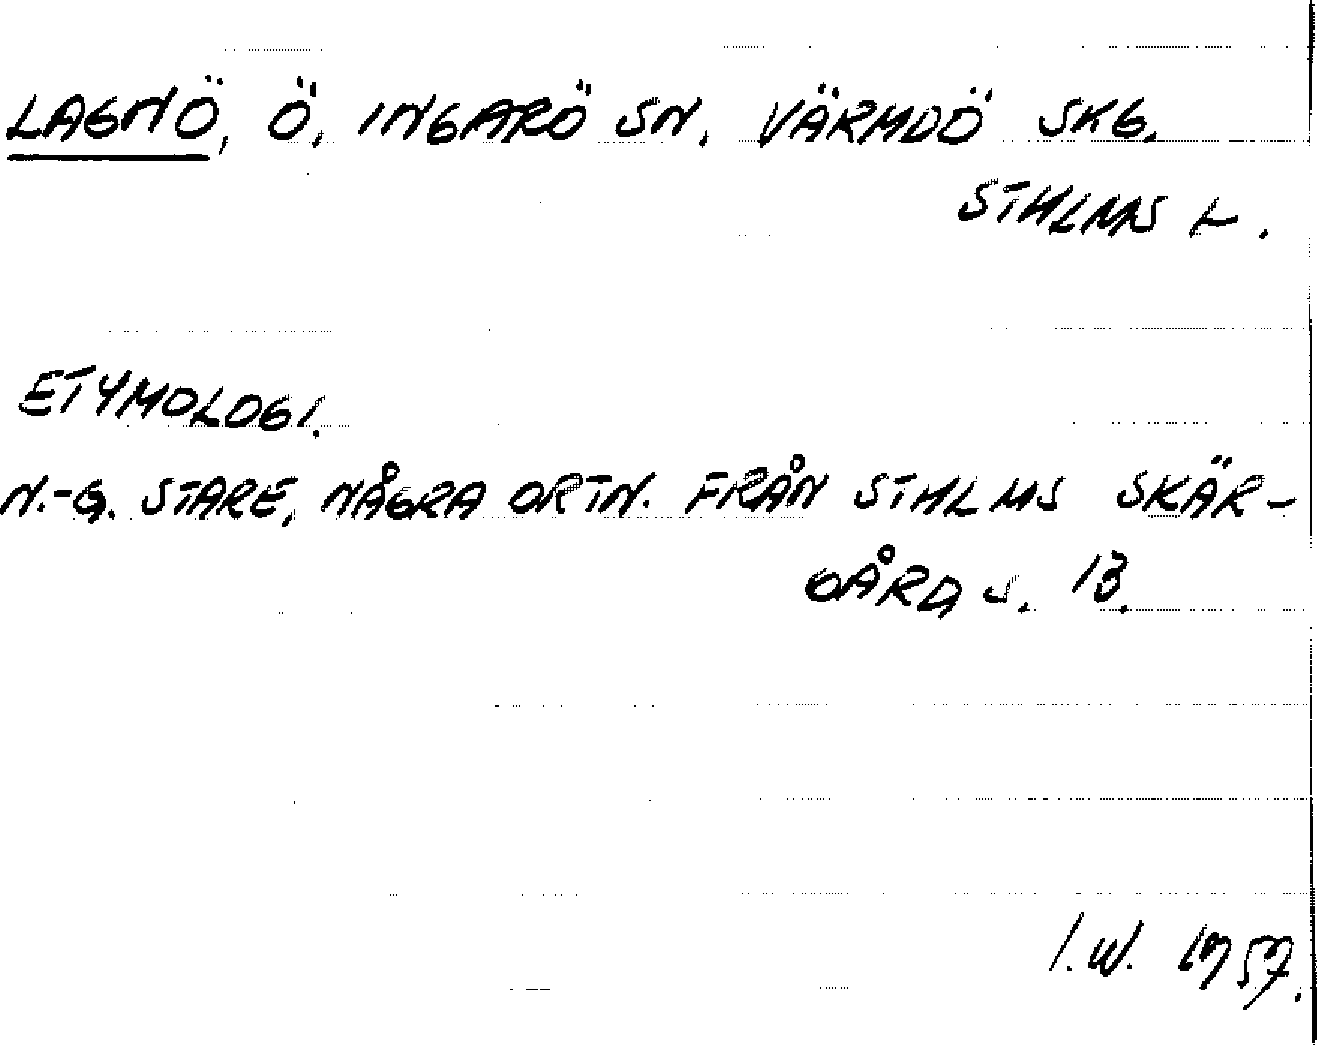 LAGNÖ, Ö, INGARÖ SN. VÄRMDÖ SKG.
STHLMS L.
ETYMOLOGI.
N.-G. STARE, NÅGRA ORTN. FRÅN STHLMS SKÄR-
GÅRD S. 13.
I.W. 1957.